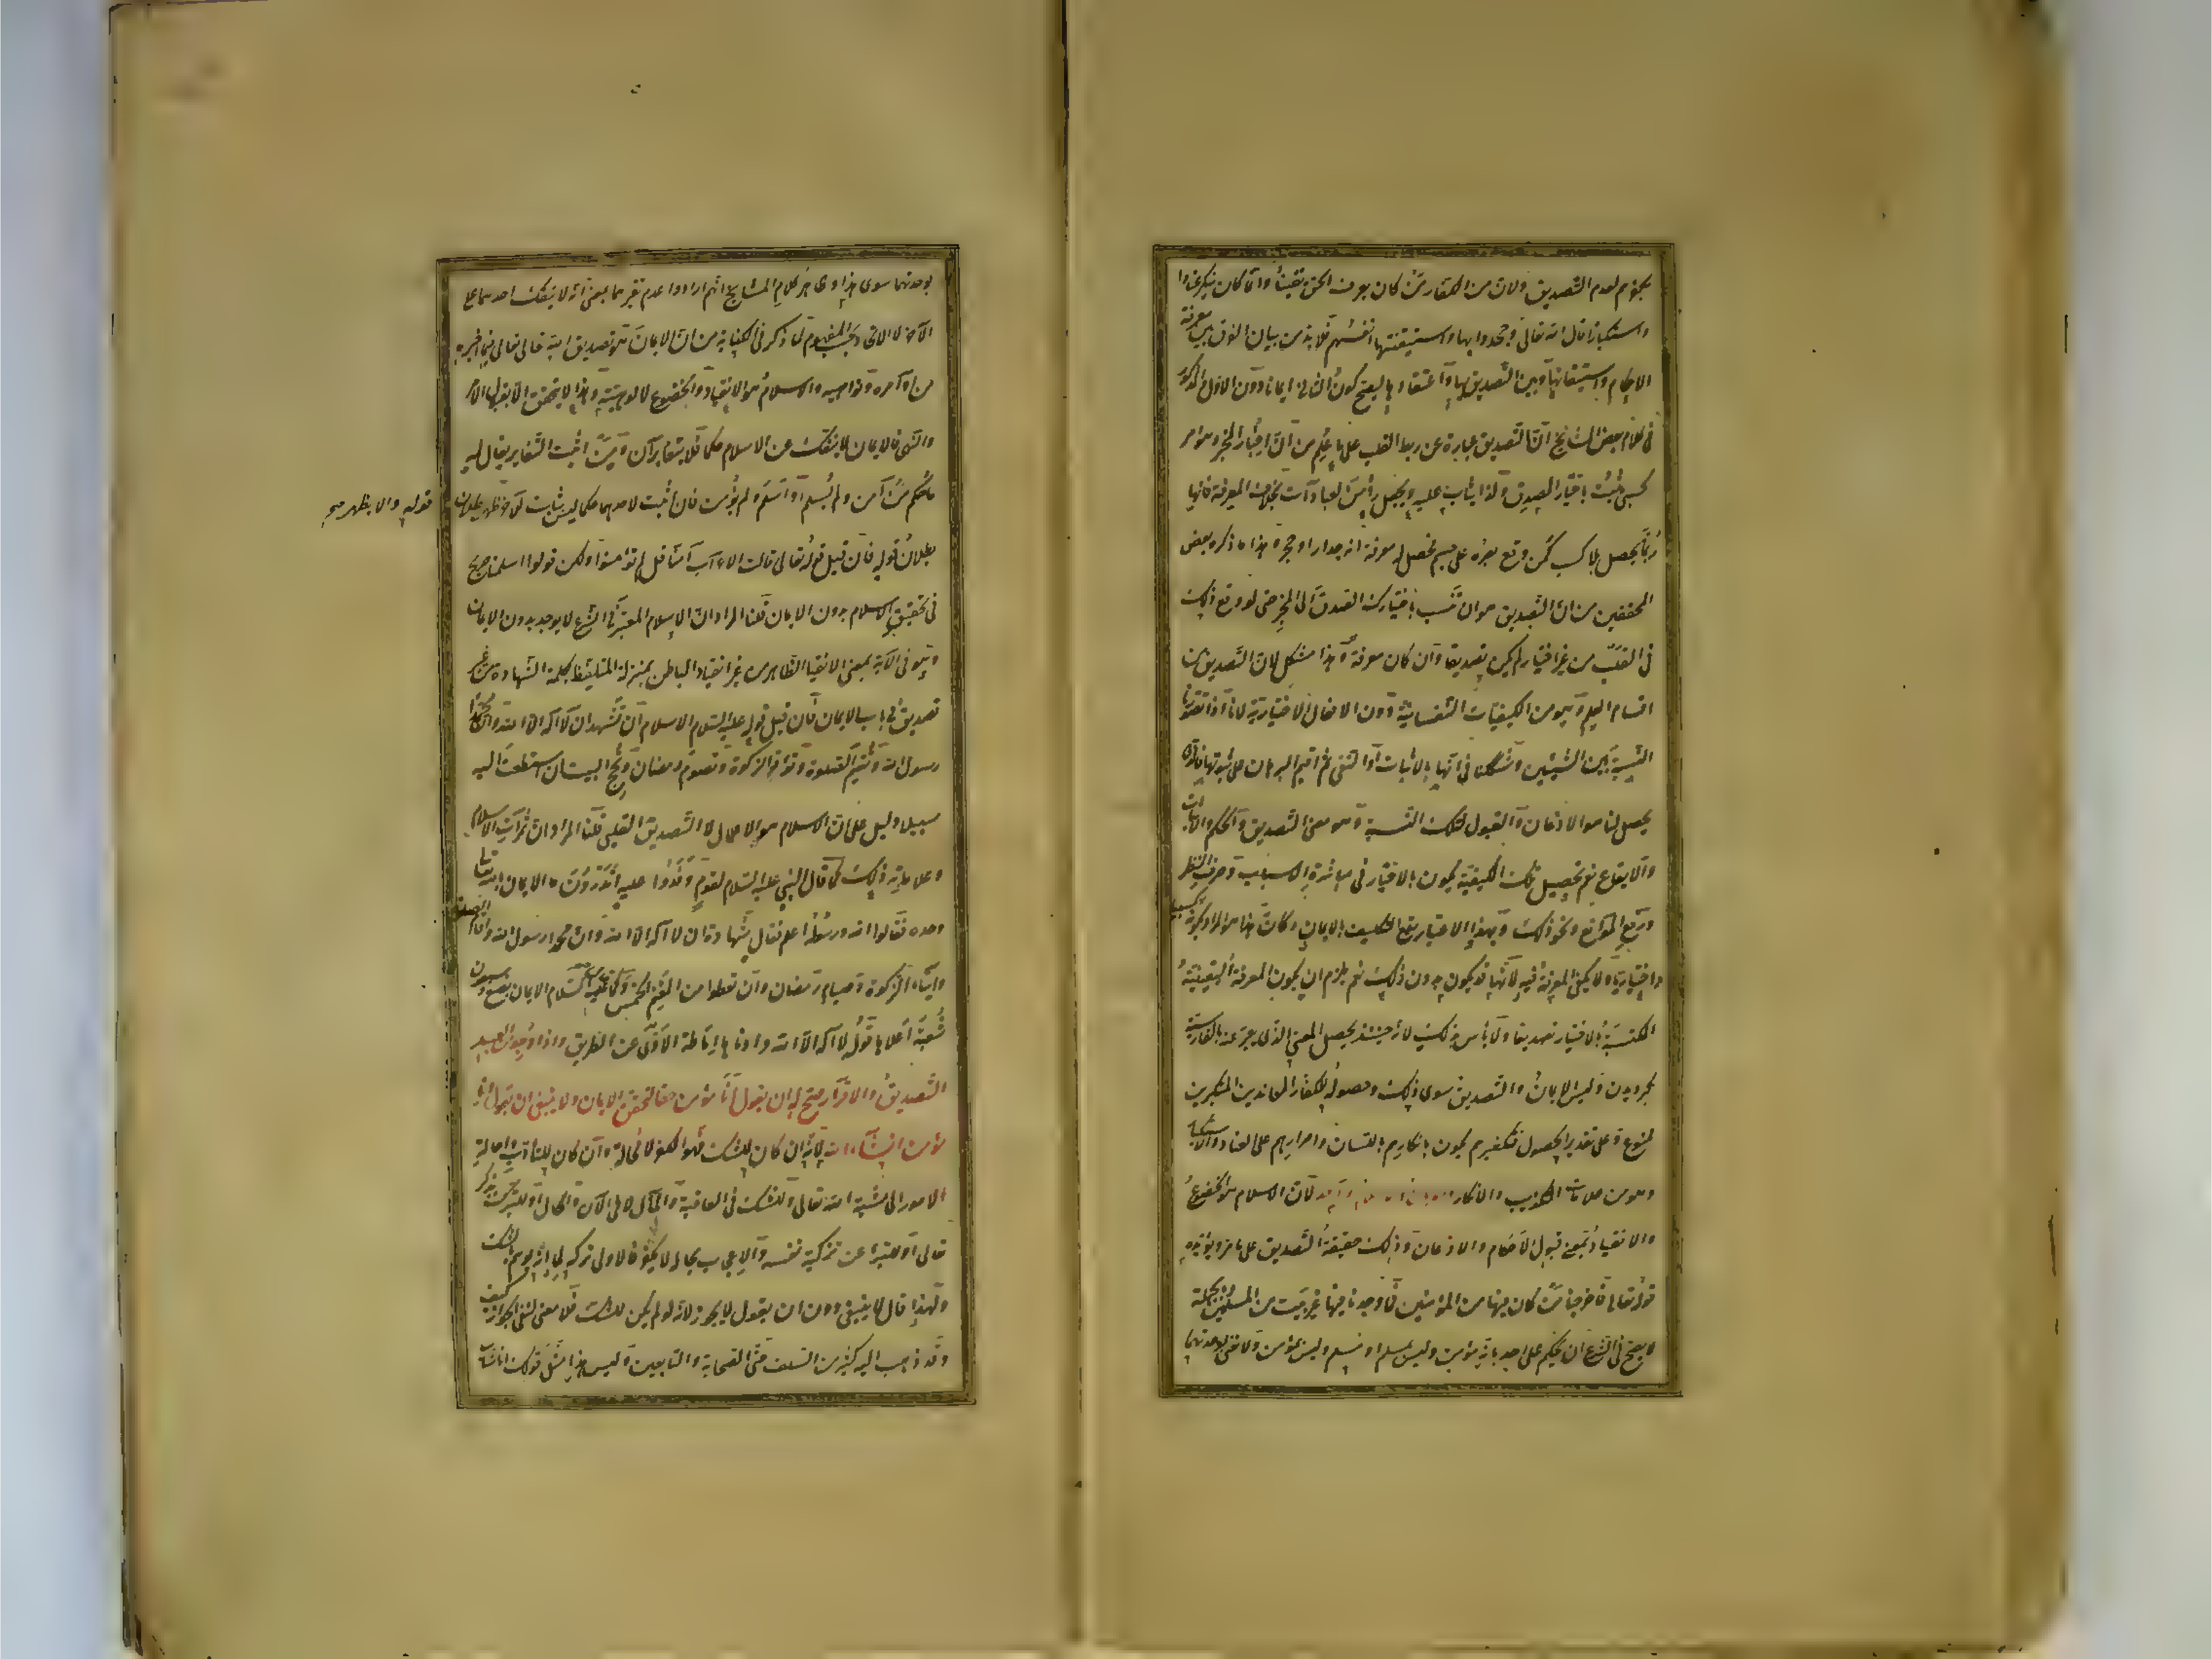 بكفرهم لعدم التصديق ولان من الكفار من كان يعرف الحق يقينا وانما كان ينكر عنادا
واستكبارا قال الله تعالى وجحدوا بها واستيقنتها انفسهم فلا بد من بيان الفرق بين معرفة
الاحكام واستيقانها وبين التصديق بها واعتقادها ليصح كون الثاني ايمانا دون الاول والمذكور
في كلام بعض المشايخ ان التصديق عبارة عن ربط القلب على ما علم من اخبار المخبر وهو امر
كسبي يثبت باختيار المصدق ولذا يثاب عليه ويجعل رأس العبادات بخلاف المعرفة فانها
ربما يحصل بلا كسب كمن وقع بصره على جسم فحصل له معرفة انه جدار او حجر وهذا ما ذكره بعض
المحققين من ان التصديق هو ان تنسب باختيارك الصدق الى المخبر حتى لو وقع ذلك
في القلب من غير اختيار لم يكن تصديقا وان كان معرفة وهذا مشكل لان التصديق من
اقسام العلم وهو من الكيفيات النفسانية دون الافعال الاختيارية لانا اذا تصورنا
النسبة بين الشيئين وشككنا في انها بالاثبات او النفي ثم اقيم البرهان على ثبوتها فالذي
يحصل لنا هو الاذعان والقبول لتلك النسبة وهو معنى التصديق والحكم والاثبات
والايقاع نعم تحصيل تلك الكيفية يكون بالاختيار في مباشرة الاسباب وصرف النظر
ورفع الموانع ونحو ذلك وبهذا الاعتبار يقع التكليف بالايمان وكان هذا هو المراد بكونه كسبيا
واختياريا ولا يكفي المعرفة فيه لانها قد يكون بدون ذلك نعم يلزم ان يكون المعرفة اليقينية
المكتسبة بالاختيار تصديقا ولا بأس بذلك لانه حينئذ يحصل المعنى الذي يعبر عنه بالفارسية
بكرويدن وليس الايمان والتصديق سوى ذلك وحصوله للكفار المعاندين المستكبرين
ممنوع وعلى تقدير الحصول فتكفيرهم يكون بانكارهم باللسان واصرارهم على العناد والاستكبار
وهو من علامات التكذيب والانكار والايمان والاسلام واحد لان الاسلام هو الخضوع
والانقياد بمعنى قبول الاحكام والاذعان وذلك حقيقة التصديق على ما مر ويؤيده
قوله تعالى فاخرجنا من كان فيها من المؤمنين فما وجدنا فيها غير بيت من المسلمين وبالجملة
لا يصح في الشرع ان يحكم على احد بانه مؤمن وليس بمسلم او مسلم وليس بمؤمن ولا نعني بوحدتهما
بوحدتهما سوى هذا وظاهر كلام المشايخ انهم ارادوا عدم تغايرهما بمعنى انه لا ينفك احدهما عن
الآخر لا الاتحاد بحسب المفهوم لما ذكر في الكفاية من ان الايمان هو تصديق الله تعالى فيما اخبر به
من اوامره ونواهيه والاسلام هو الانقياد والخضوع لالوهيته وهذا لا يتحقق الا بقبول الامر
والنهي فالايمان لا ينفك عن الاسلام حكما فلا يتغايران ومن اثبت التغاير يقال له
ما حكم من آمن ولم يسلم او اسلم ولم يؤمن فان اثبت لاحدهما حكما ليس بثابت للآخر ظهر بطلان
قوله والا يظهر صح
بطلان قوله فان قيل قوله تعالى قالت الاعراب آمنا قل لم تؤمنوا ولكن قولوا اسلمنا صريح
في تحقيق الاسلام بدون الايمان قلنا المراد ان الاسلام المعتبر في الشرع لا يوجد بدون الايمان
وهو في الآية بمعنى الانقياد الظاهر من غير انقياد الباطن بمنزلة المتلفظ بكلمة الشهادة من غير
تصديق في باب الايمان فان قيل قوله عليه السلام الاسلام ان تشهد ان لا اله الا الله وان محمدا
رسول الله وتقيم الصلوة وتؤتي الزكوة وتصوم رمضان وتحج البيت ان استطعت اليه
سبيلا دليل على ان الاسلام هو الاعمال لا التصديق القلبي قلنا المراد ان ثمرات الاسلام
وعلاماته ذلك كما قال النبي عليه السلام لقوم وفدوا عليه اتدرون ما الايمان بالله تعالى
وحده فقالوا الله ورسوله اعلم فقال شهادة ان لا اله الا الله وان محمدا رسول الله واقام الصلوة
وايتاء الزكوة وصيام رمضان وان تعطوا من المغنم الخمس وكما قال عليه السلام الايمان بضع وسبعون
شعبة اعلاها قول لا اله الا الله وادناها اماطة الاذى عن الطريق واذا وجد من العبد
التصديق والاقرار صح له ان يقول انا مؤمن حقا لتحقق الايمان ولا ينبغي ان يقول انا
مؤمن ان شاء الله لانه ان كان للشك فهو الكفر لا محالة وان كان للتأدب واحالة
الامور الى مشية الله تعالى او للشك في العاقبة والمآل لا في الآن والحال او للتبرك بذكر
تعالى او للتبرئ عن تزكية نفسه والاعجاب بحاله لا يكفر فالاولى تركه لما انه يوهم بالشك
ولهذا قال لا ينبغي دون ان يقول لا يجوز لانه لو لم يكن للشك فلا معنى لنفي الجواز كيف
وقد ذهب اليه كثير من السلف حتى الصحابة والتابعين وليس هذا مثل قولك انا شاب